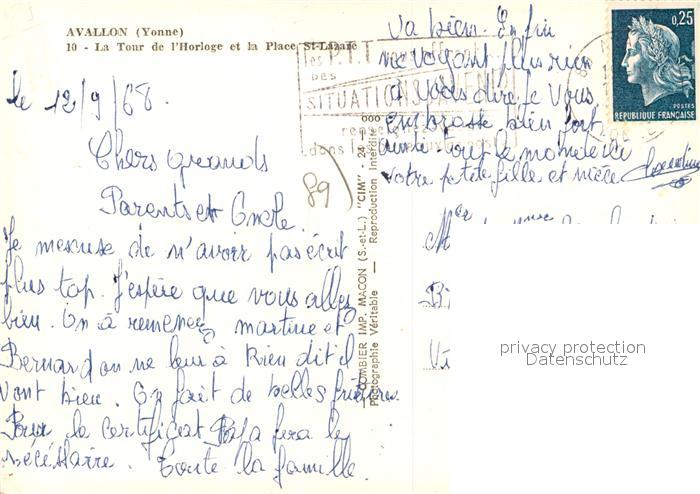 AVALLON (Yonne)
10 - La Tour de l'Horloge et la Place St-Lazare
le 12/9/68.
Chers grands
Parents et Oncle.
Je mescuse de n'avoir pas écrit
plus top. J'espère que vous allez
bien. On à remenez martine et
Bernard on ne leur à Rien dit il
vont bien. On fait de belles
Pour le certificat Papa fera le
nécéssaire. Toute la famille
va bien. Enfin
ne voyant plus rien
a vous dire je vous
embrasse bien fort
tout le monde
votre petite fille et nièce
89
les P.T.T. vous offrent
DES
SITUATIONS D'AVENIR
dans
0,25
POSTES
REPUBLIQUE FRANÇAISE
COMBIER IMP. MACON (S.-et-L.) "CIM"
Photographie Véritable — Reproduction Interdite
privacy protection
Datenschutz